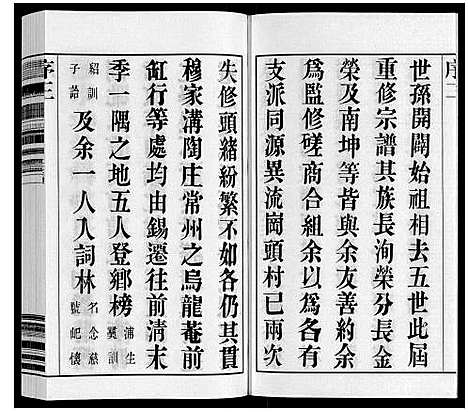 序二
世孫開闢始祖相去五世此屆
重修宗譜其族長洵榮分長金
榮及南坤等皆與余友善約余
爲監修磋商合組余以爲各有
支派同源異流崗頭村已兩次
失修頭緒紛繁不如各仍其貫
穆家溝陶庄常州之烏龍菴前
缸行等處均由錫遷往前清末
季一隅之地五人登鄉榜
浦生
奠訓
紹訓
子詒
及余一人入詞林
名念慈
號屺懷
序三